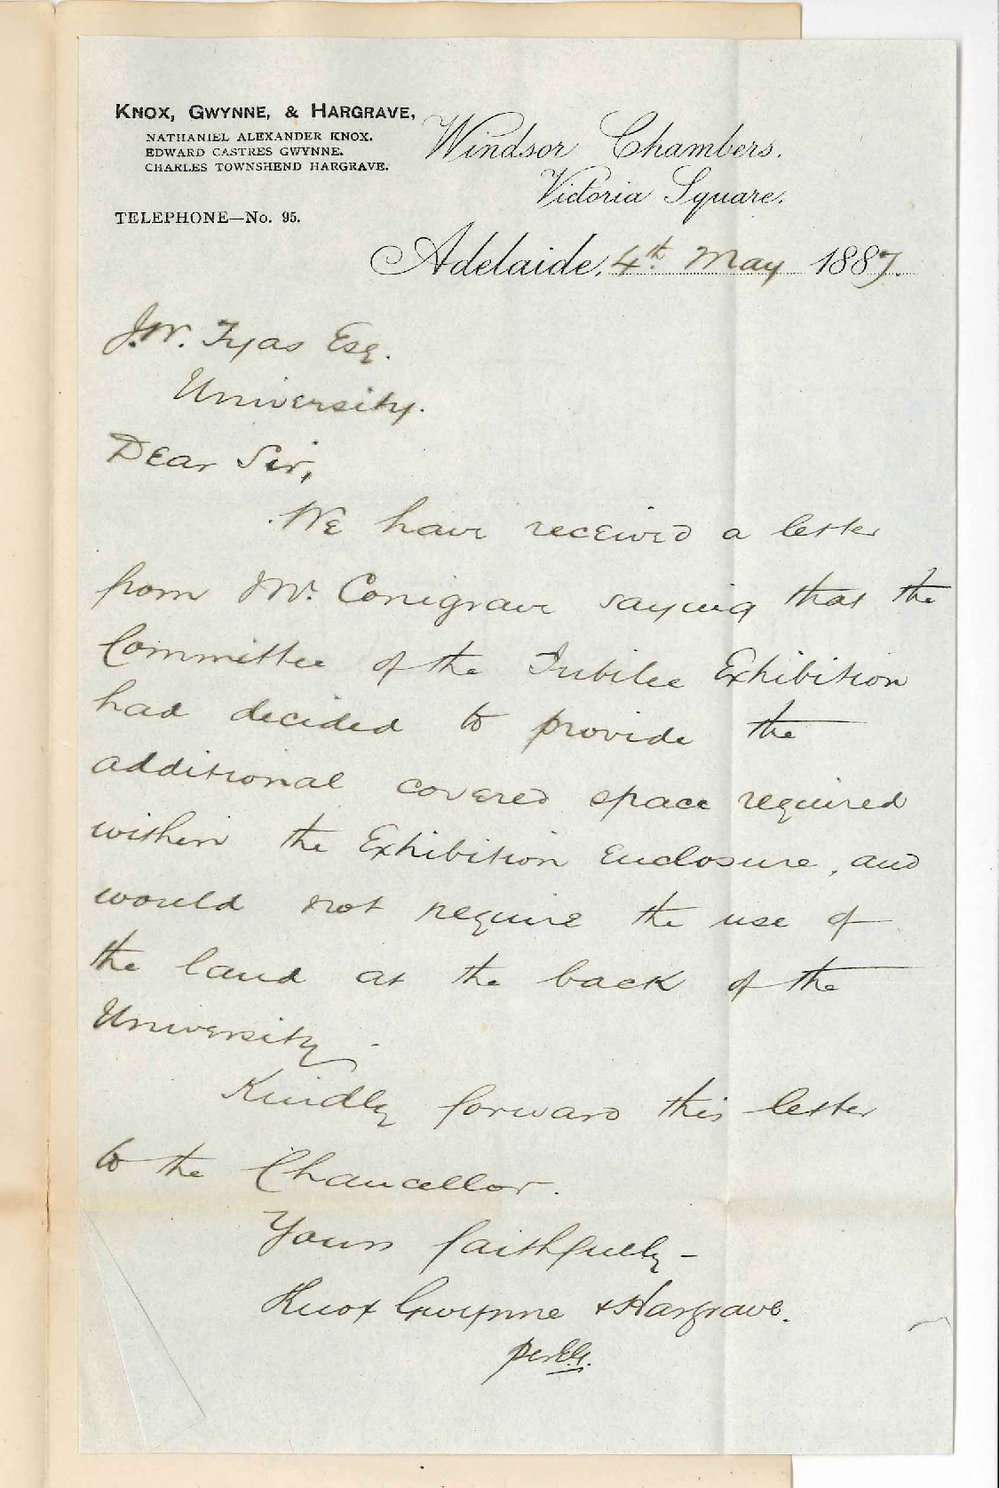 KNOX, GWYNNE, & HARGRAVE,
NATHANIEL ALEXANDER KNOX.
EDWARD CASTRES GWYNNE.
CHARLES TOWNSHEND HARGRAVE.
TELEPHONE—No. 95.
Windsor Chambers.
Victoria Square.
Adelaide, 4th May 1887.
J.W. Tyas Esq.
University.
Dear Sir,
We have received a letter
from Mr. Conigrave saying that the
Committee of the Jubilee Exhibition
had decided to provide the
additional covered space required
within the Exhibition Enclosure, and
would not require the use of
the land at the back of the
University.
Kindly forward this letter
to the Chancellor.
Yours faithfully –
Knox Gwynne & Hargrave.
per